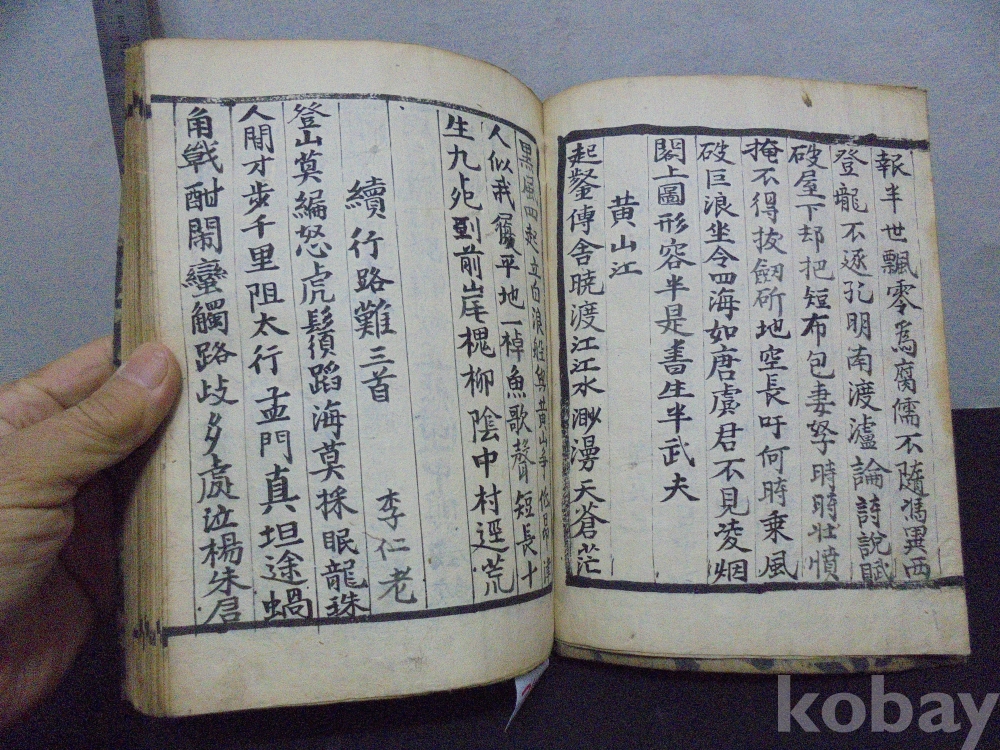 報半世飄零爲腐儒不隨馮異西
登龍不逐孔明南渡瀘論詩說賦
破屋下却把短布包妻孥時時壯憤
掩不得拔劒斫地空長吁何時乘風
破巨浪坐令四海如唐虞君不見凌烟
閣上圖形容半是書生半武夫
黃山江
起鑿傳舍曉渡江江水渺漫天蒼茫
黑風四起立白浪船與黃山爭低昂津
人似我履平地一棹魚歌聲短長十
生九死到前岸槐柳陰中村逕荒
續行路難三首
李仁老
登山莫編怒虎鬚蹈海莫採眠龍珠
人間才步千里阻太行孟門真坦途蝸
角戰酣鬧蠻觸路歧多處泣楊朱君
kobay